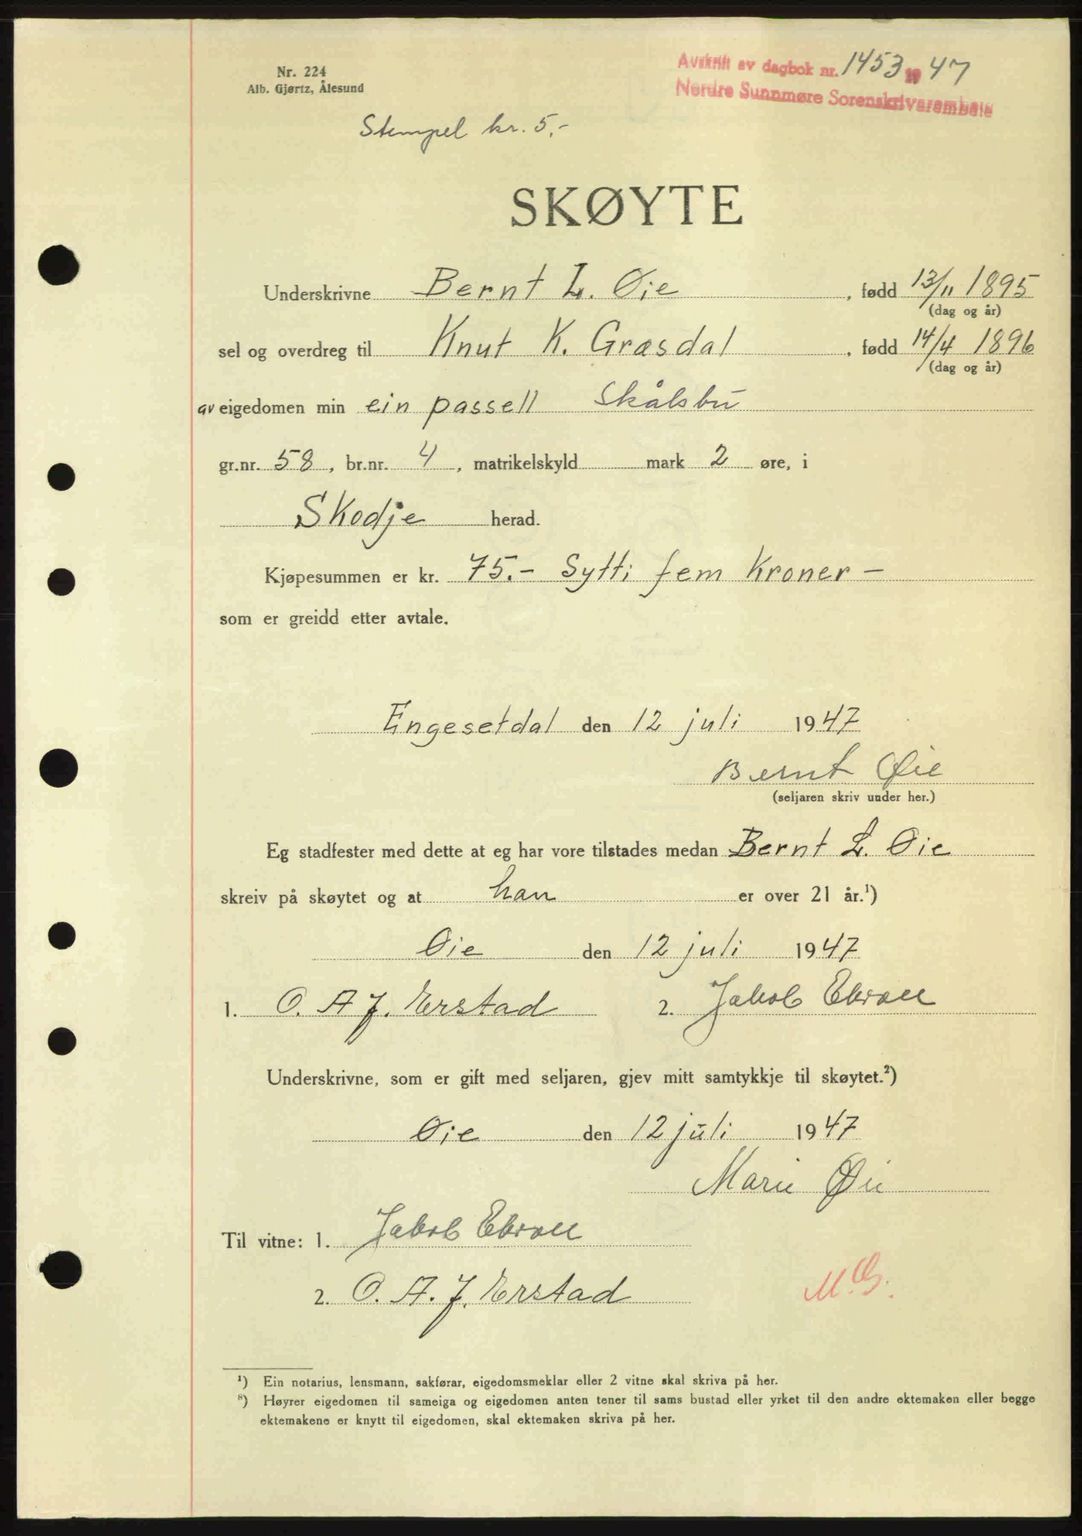 Nr. 224
Alb. Gjørtz, Ålesund
Avskrift av dagbok nr. 1453 1947
Nordre Sunnmøre Sorenskrivarembete
Stempel kr. 5,-
SKØYTE
Underskrivne Bernt L. Øie, fødd 13/11 1895
(dag og år)
sel og overdreg til Knut K. Græsdal, fødd 14/4 1896
(dag og år)
av eigedomen min ein passell Skålsbu
gr.nr. 58, br.nr. 4, matrikelskyld mark 2 øre, i
Skodje herad.
Kjøpesummen er kr. 75.- Sytti fem Kroner -
som er greidd etter avtale.
Engesetdal den 12 juli 1947
Bernt Øie
(seljaren skriv under her.)
Eg stadfester med dette at eg har vore tilstades medan Bernt L. Øie
skreiv på skøytet og at han er over 21 år.¹)
Øie den 12 juli 1947
1. O. A. J. Erstad 2. Jakob
Underskrivne, som er gift med seljaren, gjev mitt samtykkje til skøytet.²)
Øie den 12 juli 1947
Marie Øie
Til vitne: 1. Jakob
2. O. A. J. Erstad
M.G.
¹) Ein notarius, lensmann, sakførar, eigedomsmeklar eller 2 vitne skal skriva på her.
²) Høyrer eigedomen til sameiga og eigedomen anten tener til sams bustad eller yrket til den andre ektemaken eller begge
ektemakene er knytt til eigedomen, skal ektemaken skriva på her.